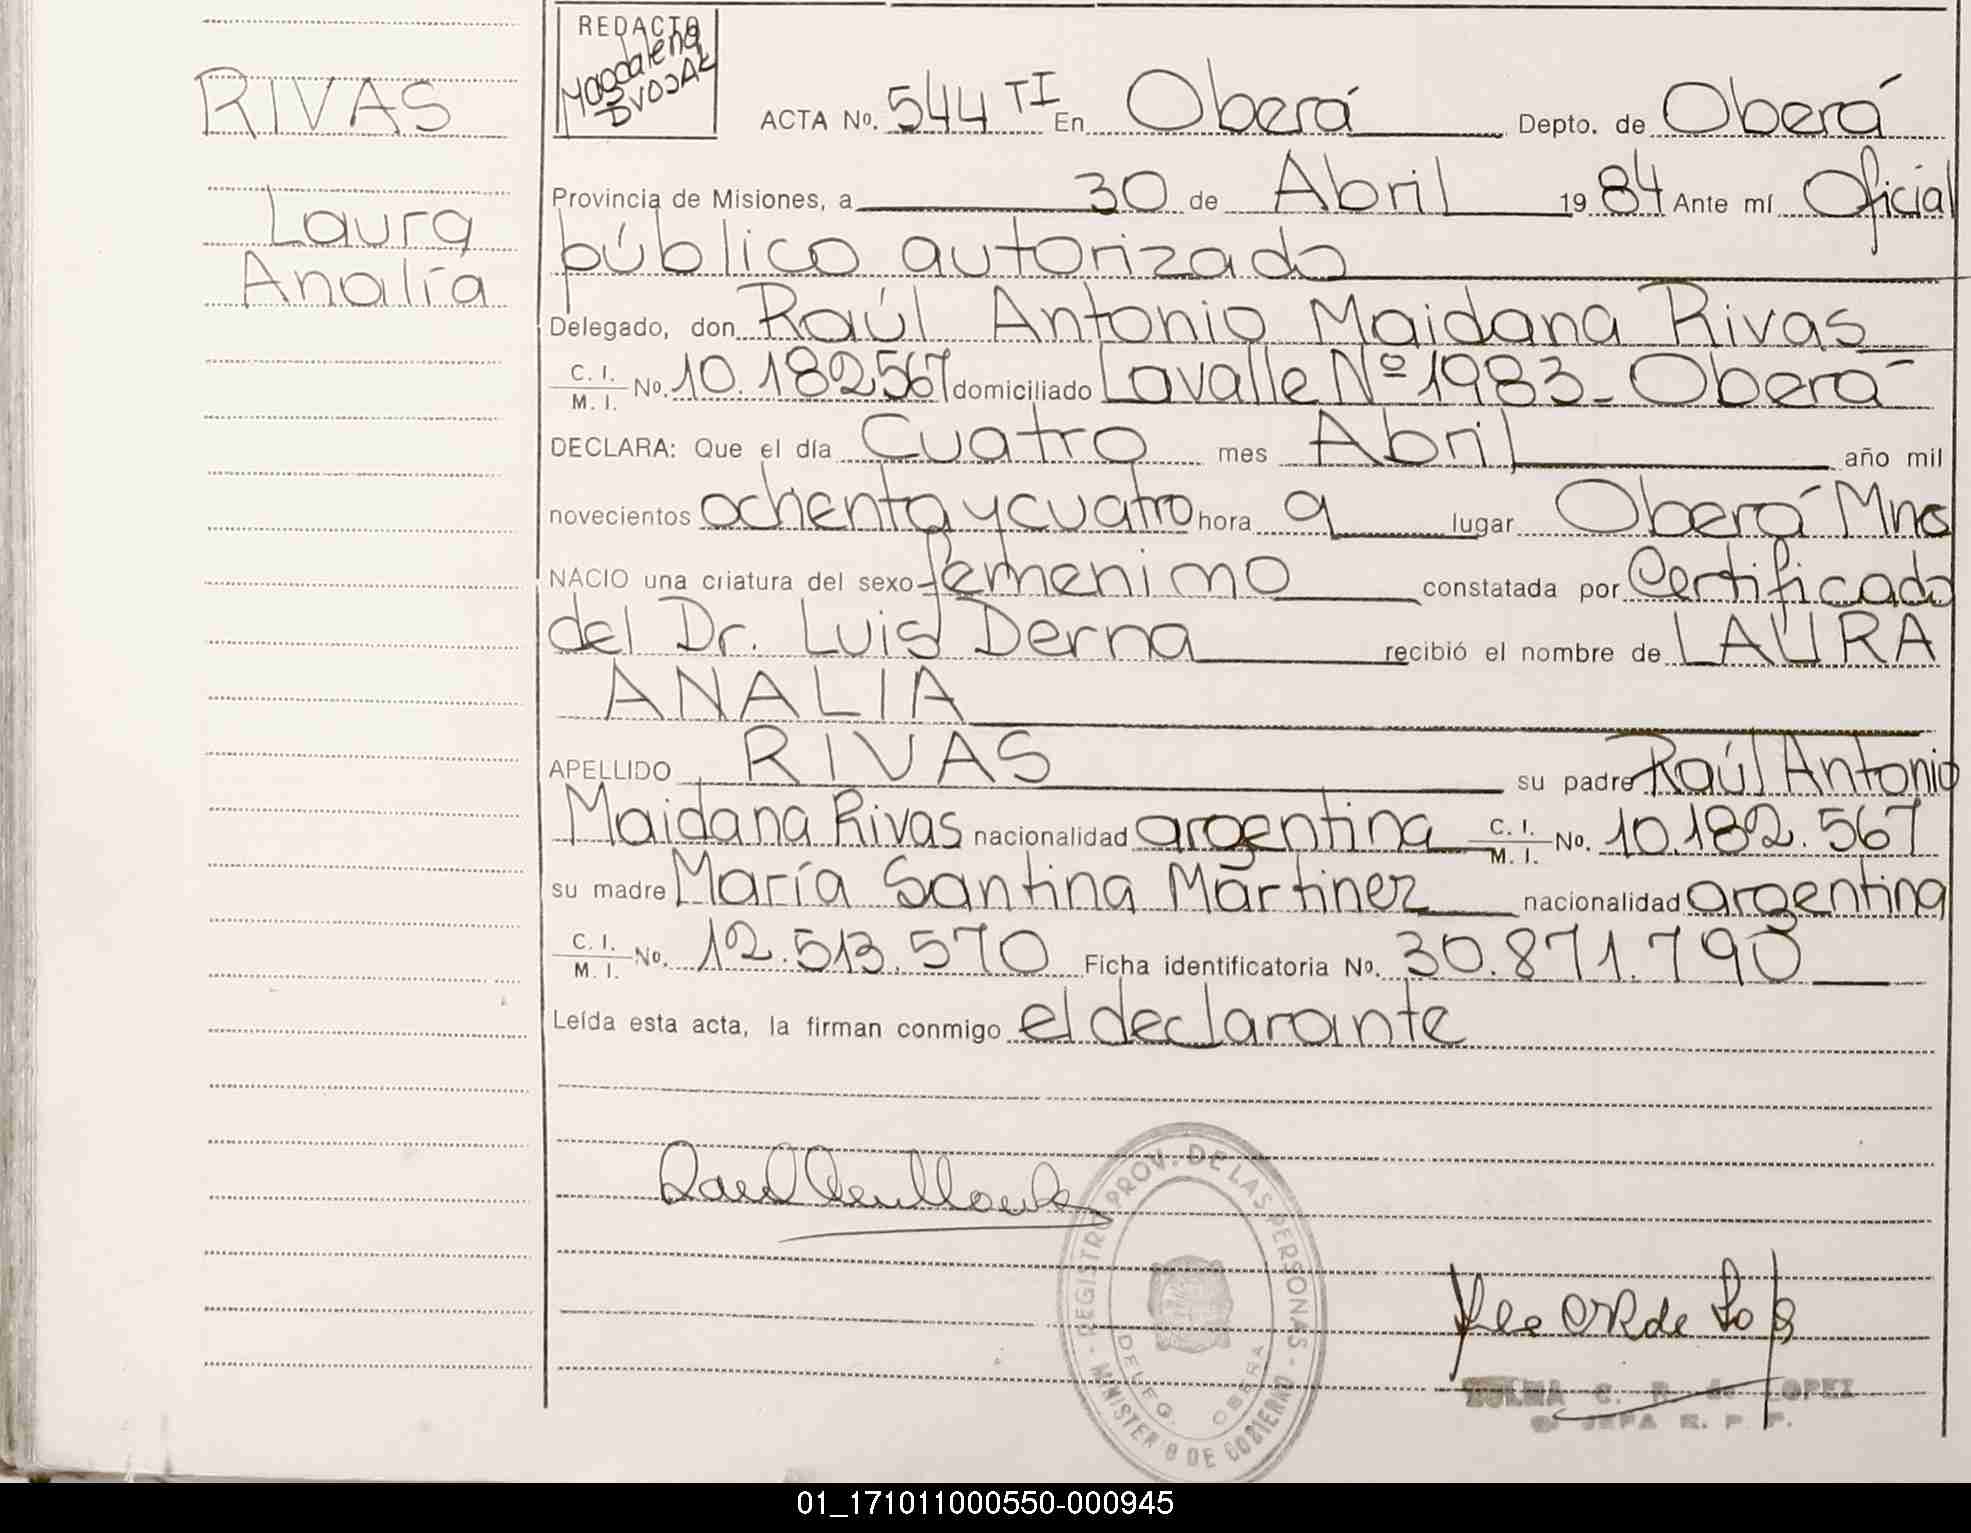 RIVAS
Laura
Analía
REDACTO
Magdalena
DVOJAK
ACTA No. 544 TI En Oberá Depto. de Oberá
Provincia de Misiones, a 30 de Abril 1984 Ante mí Oficial
público autorizado
Delegado, don Raúl Antonio Maidana Rivas
C. I. / M. I. No. 10.182567 domiciliado Lavalle Nº 1983 - Oberá
DECLARA: Que el día Cuatro mes Abril año mil
novecientos ochenta y cuatro hora 9 lugar Oberá Mnes
NACIO una criatura del sexo femenino constatada por Certificado
del Dr. Luis Derna recibió el nombre de LAURA
ANALIA
APELLIDO RIVAS su padre Raúl Antonio
Maidana Rivas nacionalidad argentina C. I. / M. I. No. 10.182.567
su madre María Santina Martinez nacionalidad argentina
C. I. / M. I. No. 12.513.570 Ficha identificatoria No. 30.871.790
Leída esta acta, la firman conmigo el declarante
REGISTRO PROV. DE LAS PERSONAS - MINISTERIO DE GOBIERNO -
DELEG. OBERA
ZULMA C. R. de LOPEZ
JEFA R. P. P.
01_171011000550-000945